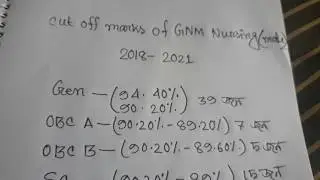 cut off marks of GNM Nursing (male)
2018 - 2021
Gen — (94. 40%.
90. 20%.) 39 জন
OBC A — (90.20% - 89.20%) 7 জন
OBC B — (90.20% - 89.60%) 5 জন
(90.20% - 89%) 15 জন